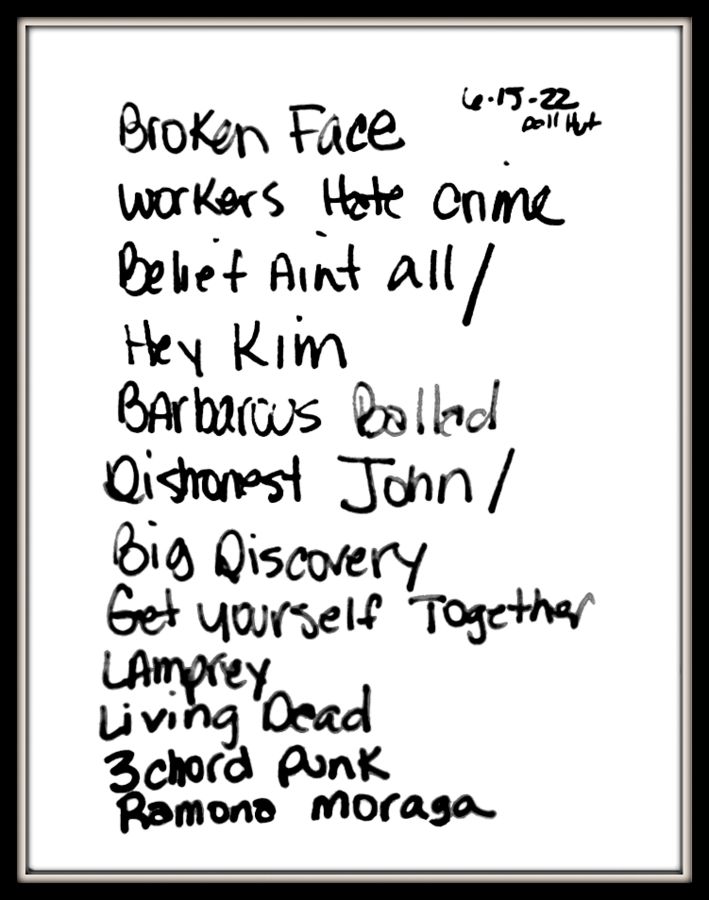 6-15-22
Doll Hut
Broken Face
Workers Hate Crime
Belief Aint all /
Hey Kim
BArbarous Ballad
Dishonest John /
Big Discovery
Get yourself Together
LAmprey
Living Dead
3 chord Punk
Ramona Moraga